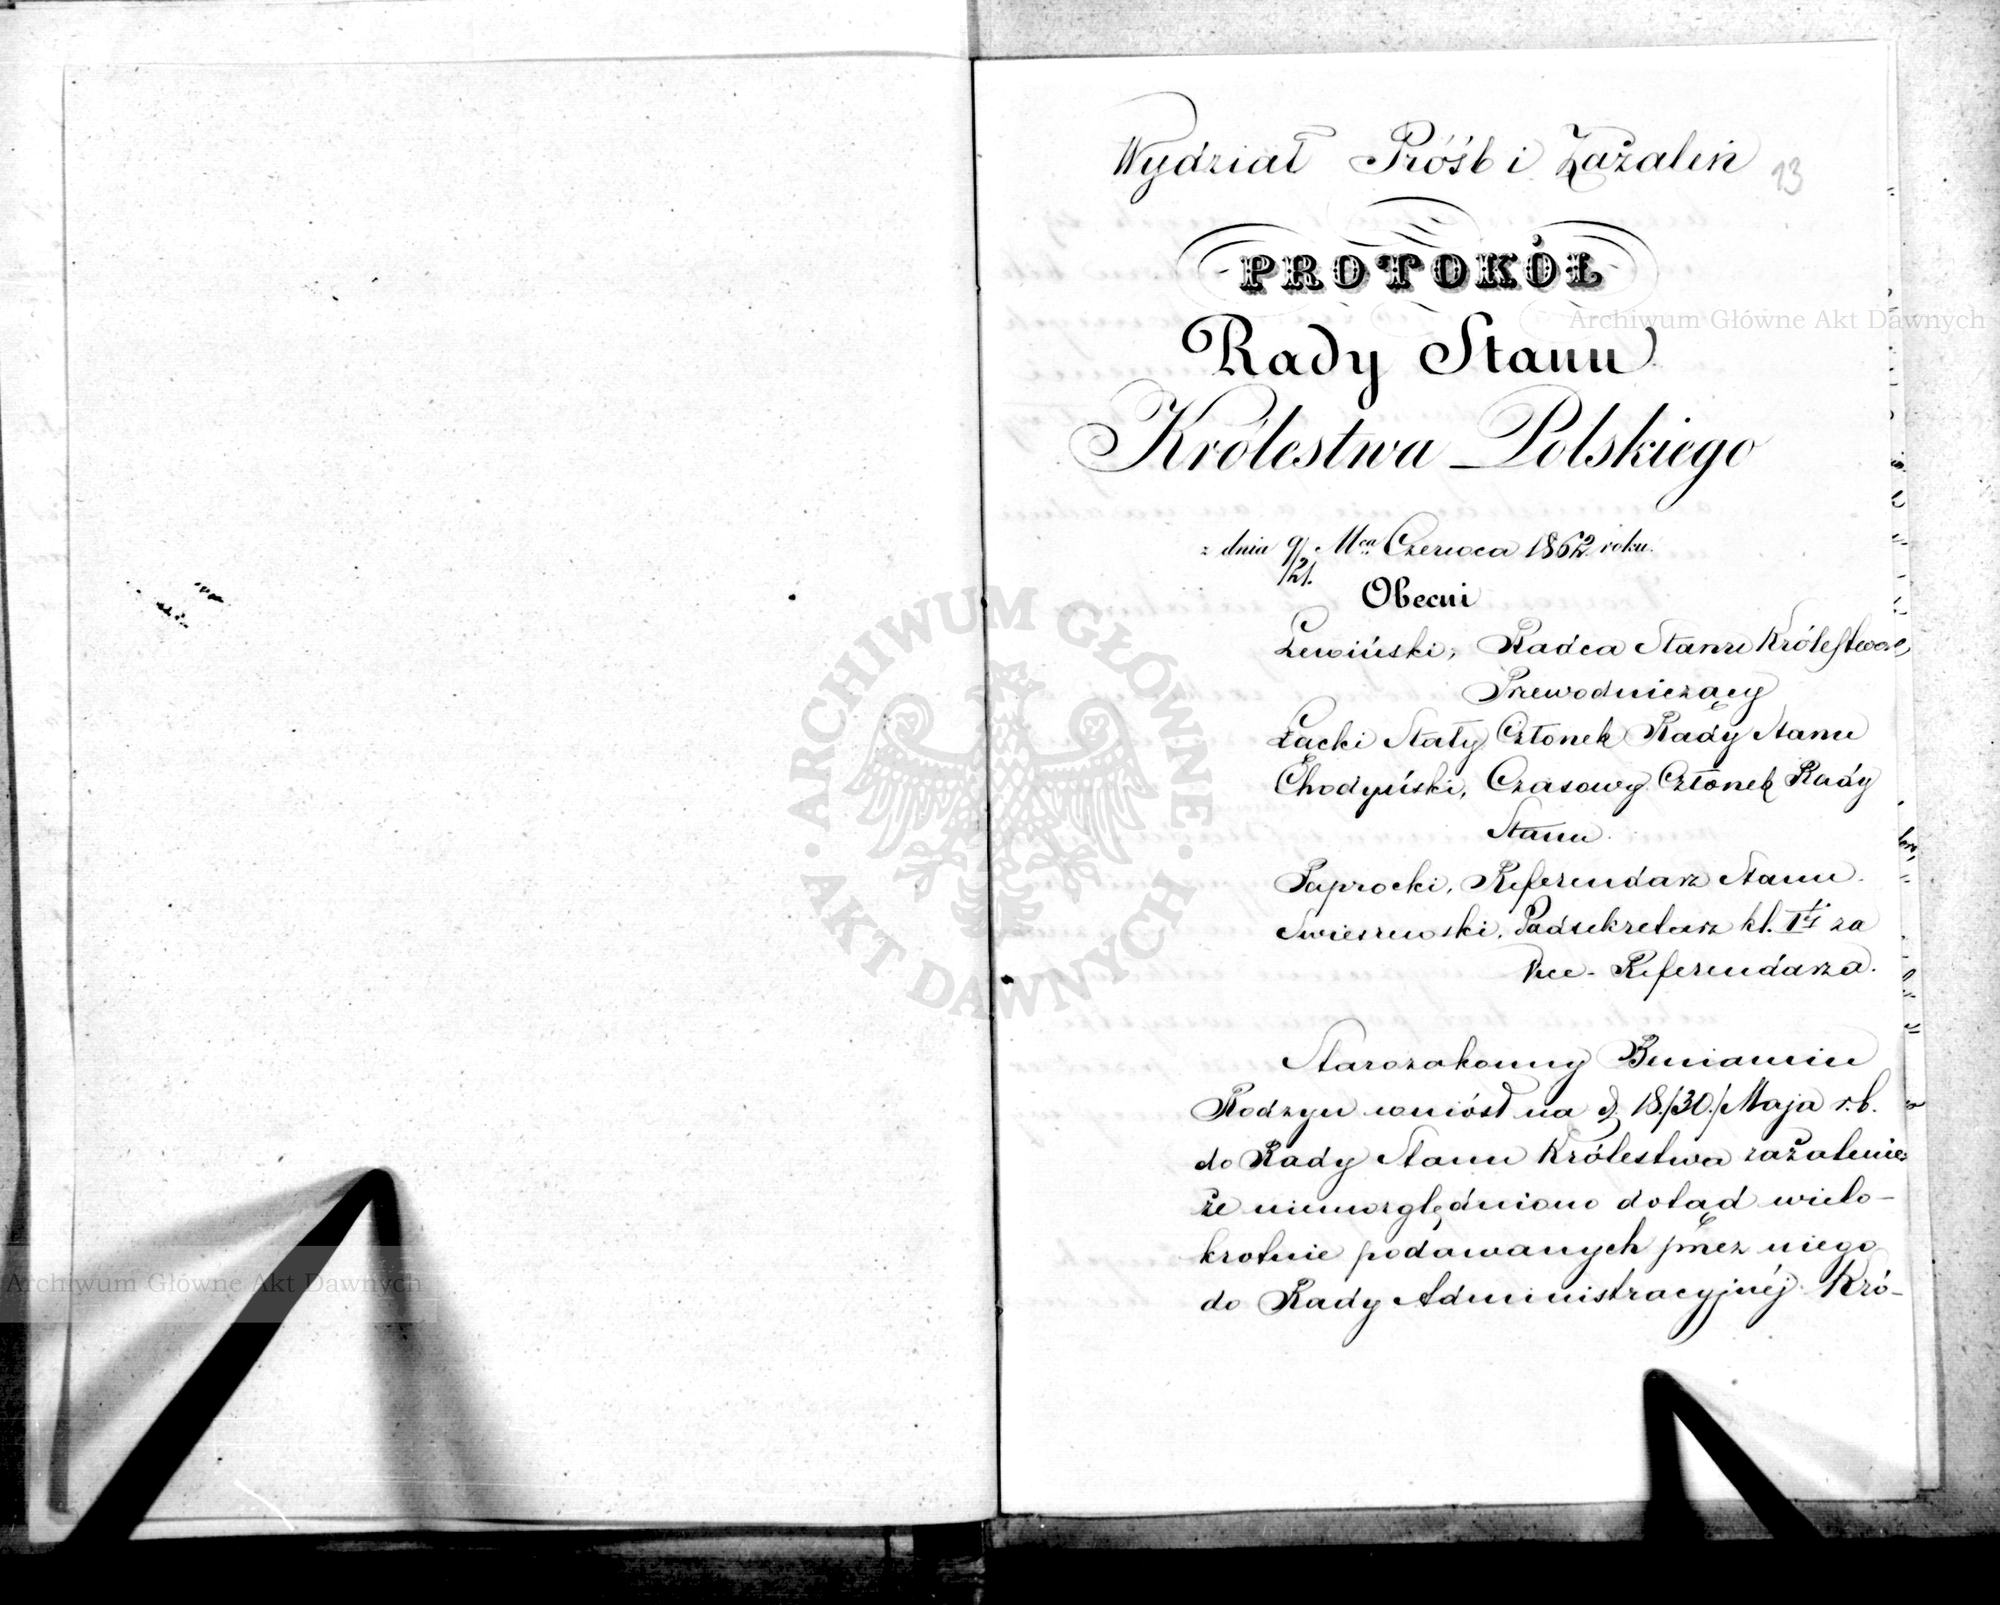 Wydział Próśb i Zażaleń
13
PROTOKÓŁ
Rady Stanu
Królestwa Polskiego
z dnia 9/21. Mca Czerwca 1862 roku.
Obecni
Lewiński, Radca Stanu Królestwa,
Przewodniczący
Łacki Stały Członek Rady Stanu
Chodyński, Czasowy Członek Rady
Stanu.
Paprocki, Referendarz Stanu.
Swieszewski, Podsekretarz kl. Iéj za
Vice-Referendarza.
Starozakonny Beniamin
Rodzyn wniósł na d. 18/30/ Maja r.b.
do Rady Stanu Królestwa zażalenie
że nieuwzględniono dotąd wielo-
krotnie podawanych przez niego
do Rady Administracyjnéj Kró-
Archiwum Główne Akt Dawnych
Archiwum Główne Akt Dawnych
ARCHIWUM GŁÓWNE AKT DAWNYCH